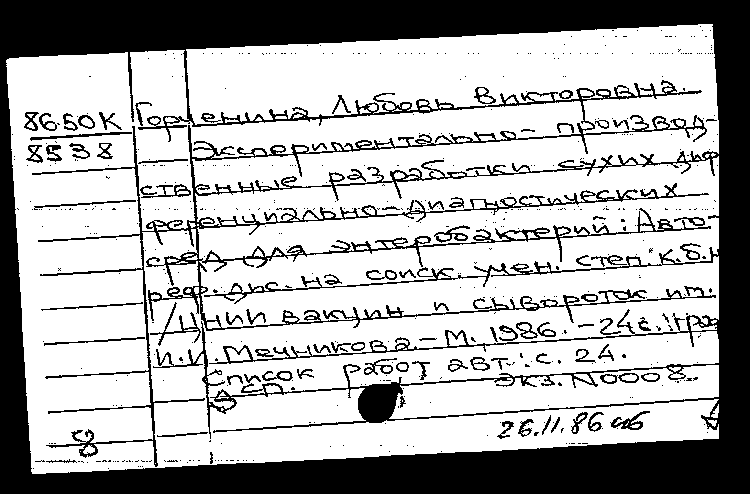 86.50К Горченина, Любовь Викторовна.
8538 Экспериментально-производ-
ственные разработки сухих диф
ференциально-диагностических
сред для энтеробактерий: Авто-
реф. дис. на соиск. учен. степ. к.б.н
/ЦНИИ вакцин и сывороток им.
И.И. Мечникова.-М., 1986.-24с.:граф
Список работ авт.: с. 24.
ЭКЗ. N0008.
сп.
8
26.11.86